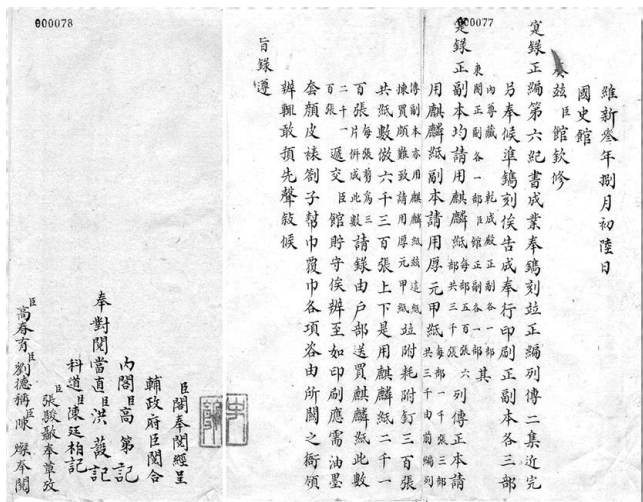 000077
維新叁年捌月初陸日
國史館
奏茲臣館欽修
寔錄正編第六紀書成業奉鐫刻並正編列傳二集近完
另奉候準鐫刻俟告成奉行印刷正副本各三部
內尊藏乾成殿正副各一部東閣正副各一部臣館正副各一部其
寔錄正副本均請用麒麟紙每部五百張六部共三千張列傳正本請
用麒麟紙副本請用厚元甲紙每部一千張三部共三千由前編列
傳副本亦用麒麟紙茲這紙揀買頗難致請用厚元甲紙並附耗附釘三百張
共紙數倣六千三百張上下是用麒麟紙二千一
百張每張剪為三片併成此數請錄由戶部送買麒麟紙此數
二千一百張遞交臣館貯守俟辨至如印刷應需油墨
套顏皮裱劄子幇巾覆巾各項咨由所關之衙領
辨輒敢預先聲敘候
旨錄遵
000078
臣閣奉閱經呈
輔政府臣閱合
內閣臣高第記
奉對閱當直臣洪記
科道臣陳廷柏記
臣張駿奉草攷
臣高春育臣劉德稱臣陳燦奉閱